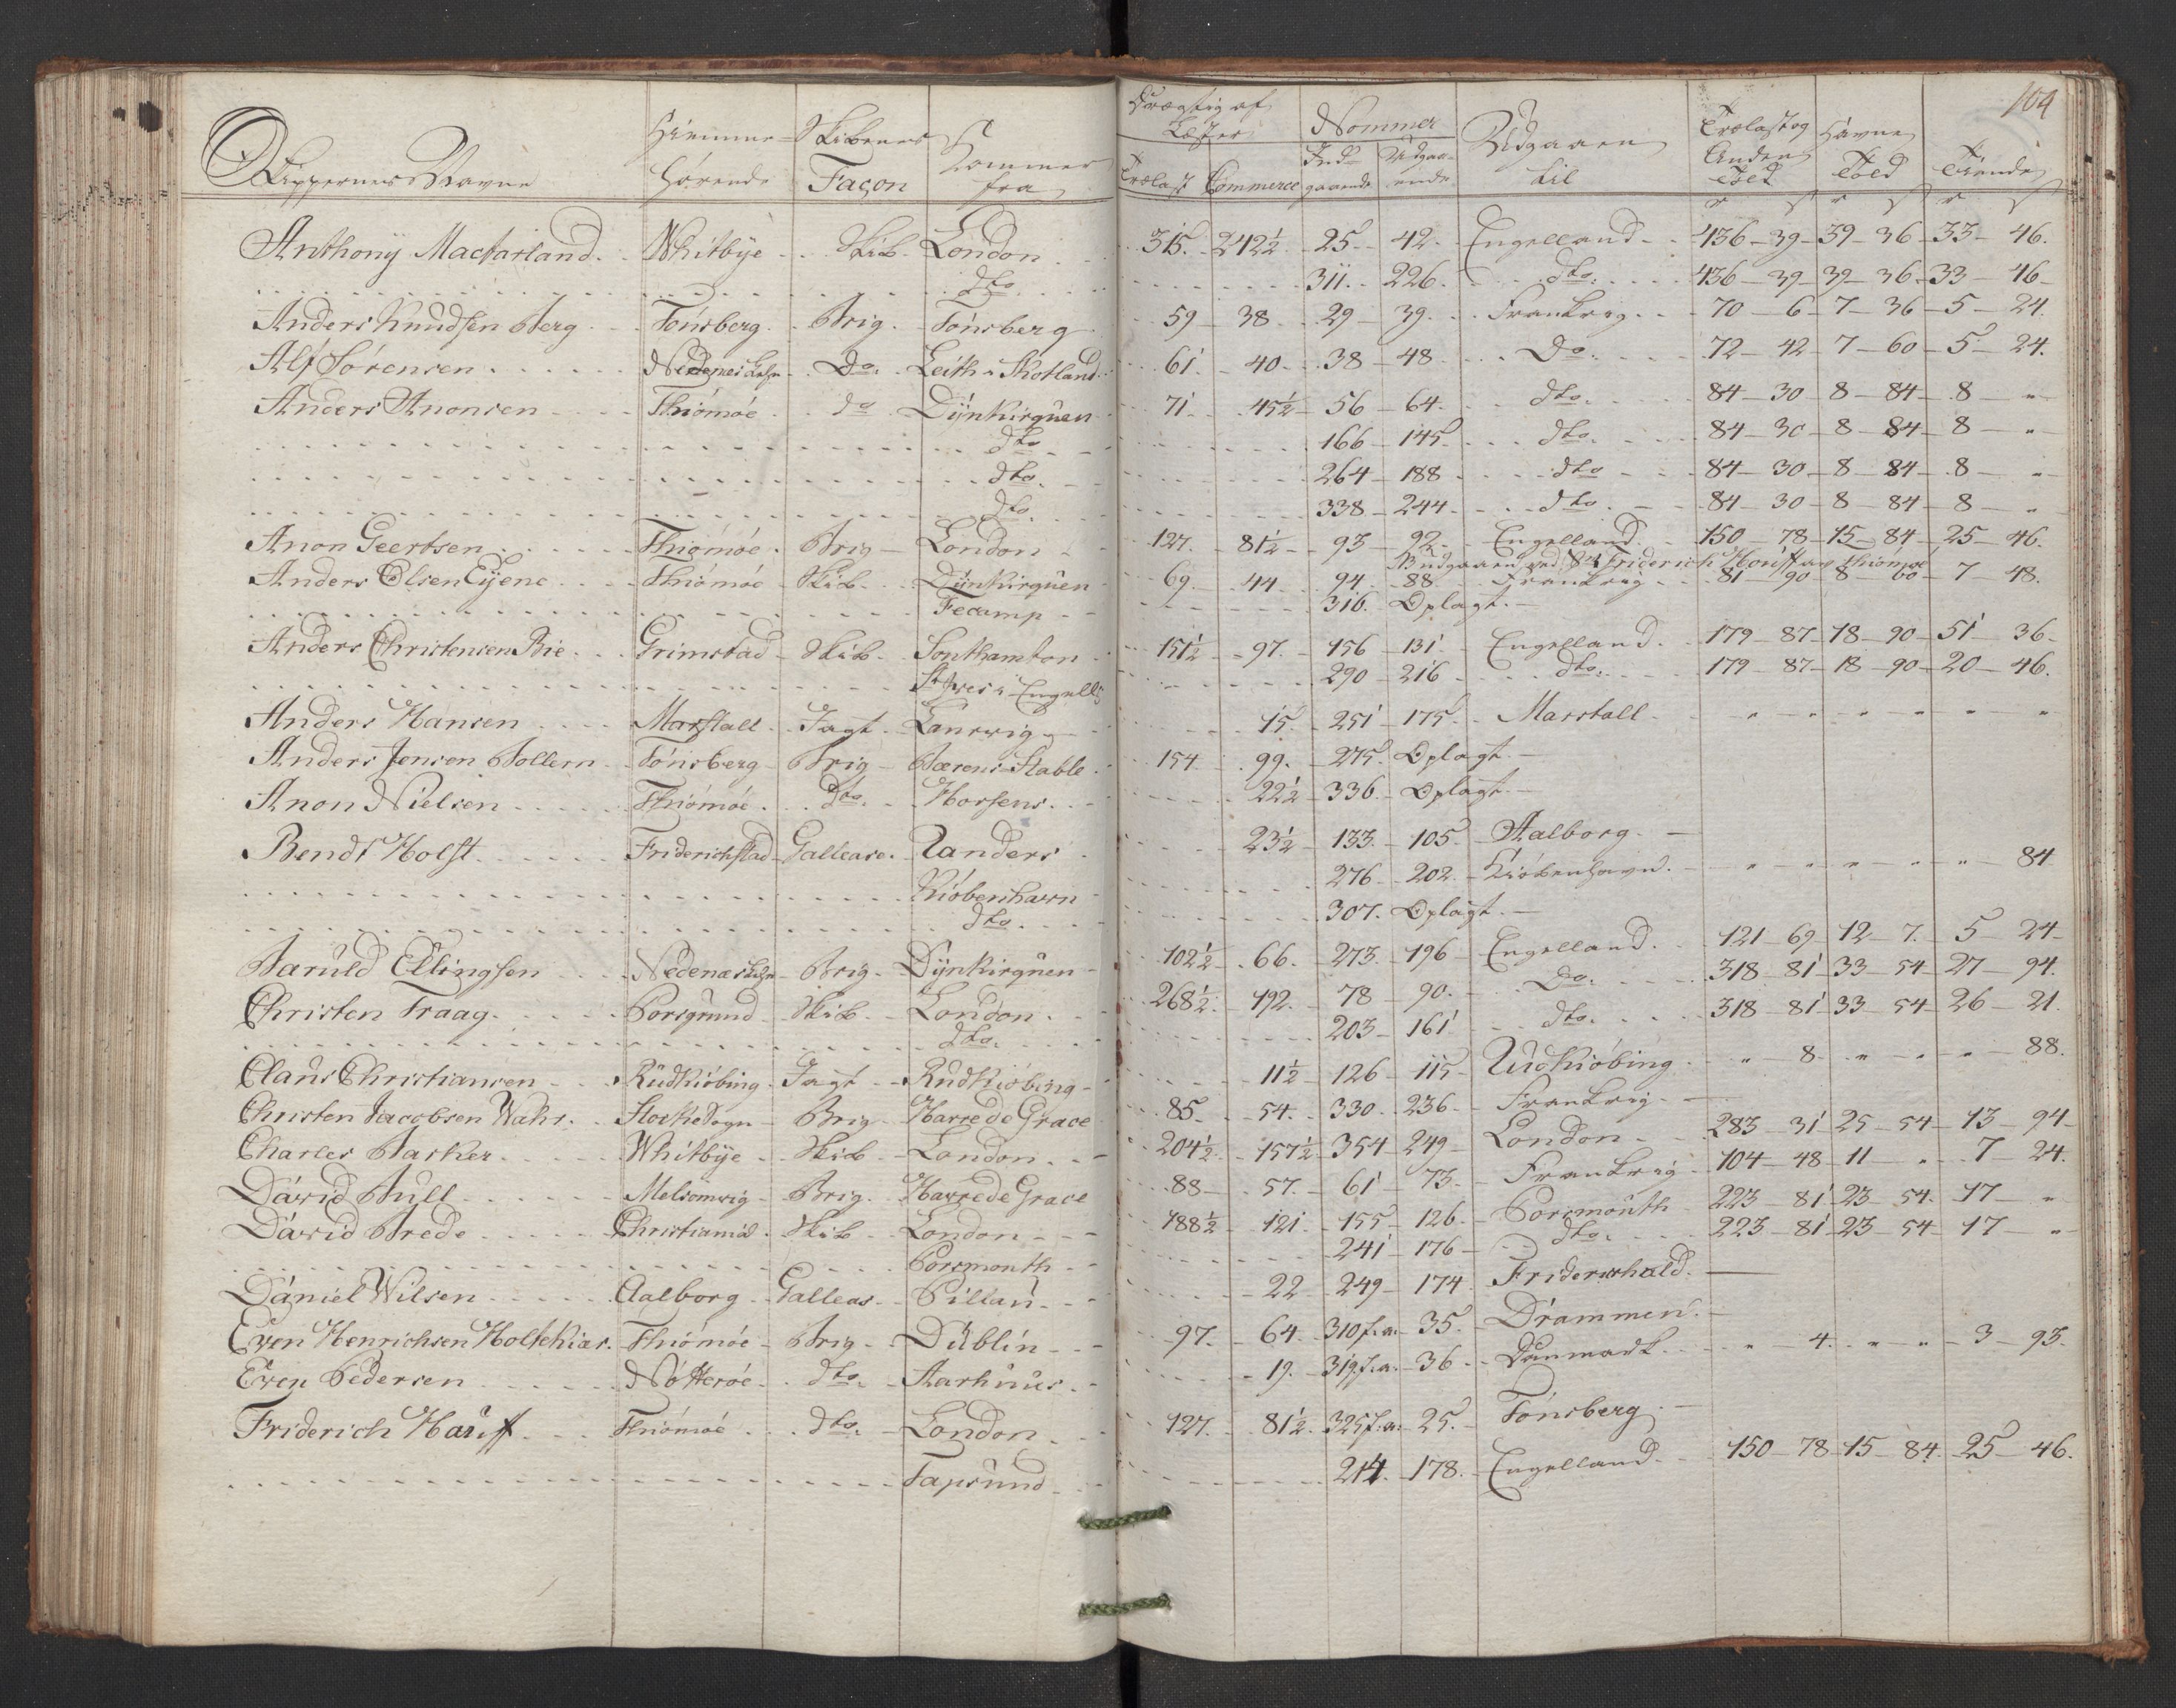 104
Skippernes Navne Hiemme-hørende Skibenes Façon Kommer fra Drægtig af Læster Trælast Commerce Nommer Ind-gaaende Udgaa-ende Udgaaer til Trælast og Anden Told Havne Told Tiende
Anthony Macfarland. Whitbye Skib London 315. 242½ 25 42 Engelland 436 39 39 36 33 46.
dto 311 226 dto. 436 39 39 36 33 46
Anders Knudsen Berg Tönsberg Brig. Tönsberg 59 38 29 39 Frankrig 70 6 7 36 5 24.
Alf Sörensen Nedenes Lehn Do. Leith i Skotland 61. 40 38 48 Do. 72 42 7 60 5 24.
Anders Anonsen Thiömöe do Dÿnkirquen 71. 45½ 56 64. dto. 84 30 8 84 8 "
dto 166 145 dto. 84 30 8 84 8 "
dto. 264 188 dto 84 30 8 84 8 "
dto. 338 244 dto. 84 30 8 84 8 "
Anon Geertsen Thiömöe Brig London 127. 81½ 93 92 Engelland 150 78 15 84 25 46.
Udgaaen ved Sk: Friderich Hauff af Thiömöe
Anders Olsen Eÿene Thiömöe Skib Dÿnkirquen 69. 44 94. 88 Frankrig 81 90 8 60 7 48.
Fecamp 316. Oplagt.
Anders Christensen Bie Grimstad Skib Southamton 151½ 97. 156 131 Engelland 179 87 18 90 51 36
St Ives i Engelld 290 216 dto. 179 87 18 90 20 46.
Anders Hansen Marstall Jagt Laurvig 15 251 175 Marstall " " " " " "
Anders Jensen Bollern Tönsberg Brig Bærens Stable 154 99. 275. Oplagt.
Anon Nielsen Thiömöe dto. Horsens 22½ 336 Oplagt.
Bendt Holst Friderichstad Gallease Randers 23½ 133. 105 Aalborg.
Kiöbenhavn 276 202 Kiöbenhavn. " " " " " 84
dto. 307. Oplagt.
Baruld Ellingsen Nedenæs Lehn Brig. Dÿnkirquen 102½ 66. 273. 196 Engelland 121 69 12 7. 5 24
Christen Traag Porsgrund Skib London 268½ 192. 78 90. Do. 318 81 33 54 27 94.
dto. 203 161 dto. 318 81 33 54 26 21.
Claus Christiansen Rudkiöbing Jagt Rudkiöbing 11½ 126 115 Rudkiöbing " 8 " " " 88.
Christen Jacobsen Wahr. Stokke Sogn Brig Havre de Grace 85. 54. 330. 236 Frankrig
Charles Barker Whitbye Skib London 204½ 157½ 354 249 London 283 31 25 54 13 94
David Bull Melsomvig Brig. Havre de Grace 88 57. 61 73. Frankrig 104 48 11 " 7 24.
David Brede Christiania Skib London 188½ 121 155 126 Porsmouth 223 81 23 54 17 "
Porsmouth 241 176 dto. 223 81 23 54 17 "
Daniel Wilsen Aalborg Galleas Pillau 22 249 174 Friderichshald.
Even Henrichsen Holtekiær. Thiömöe Brig Dublin 97. 64. 310 f. a. 35. Drammen.
Even Pedersen Nötteröe dto. Aarhuus 19. 319 f. a. 36 Danmark " 4. " " 3 93.
Friderich Hauff Thiömöe dto. London 127. 81½ 325 f. a. 25. Tönsberg.
Fapsund 214. 178. Engelland 150 78 15 84. 25 46.